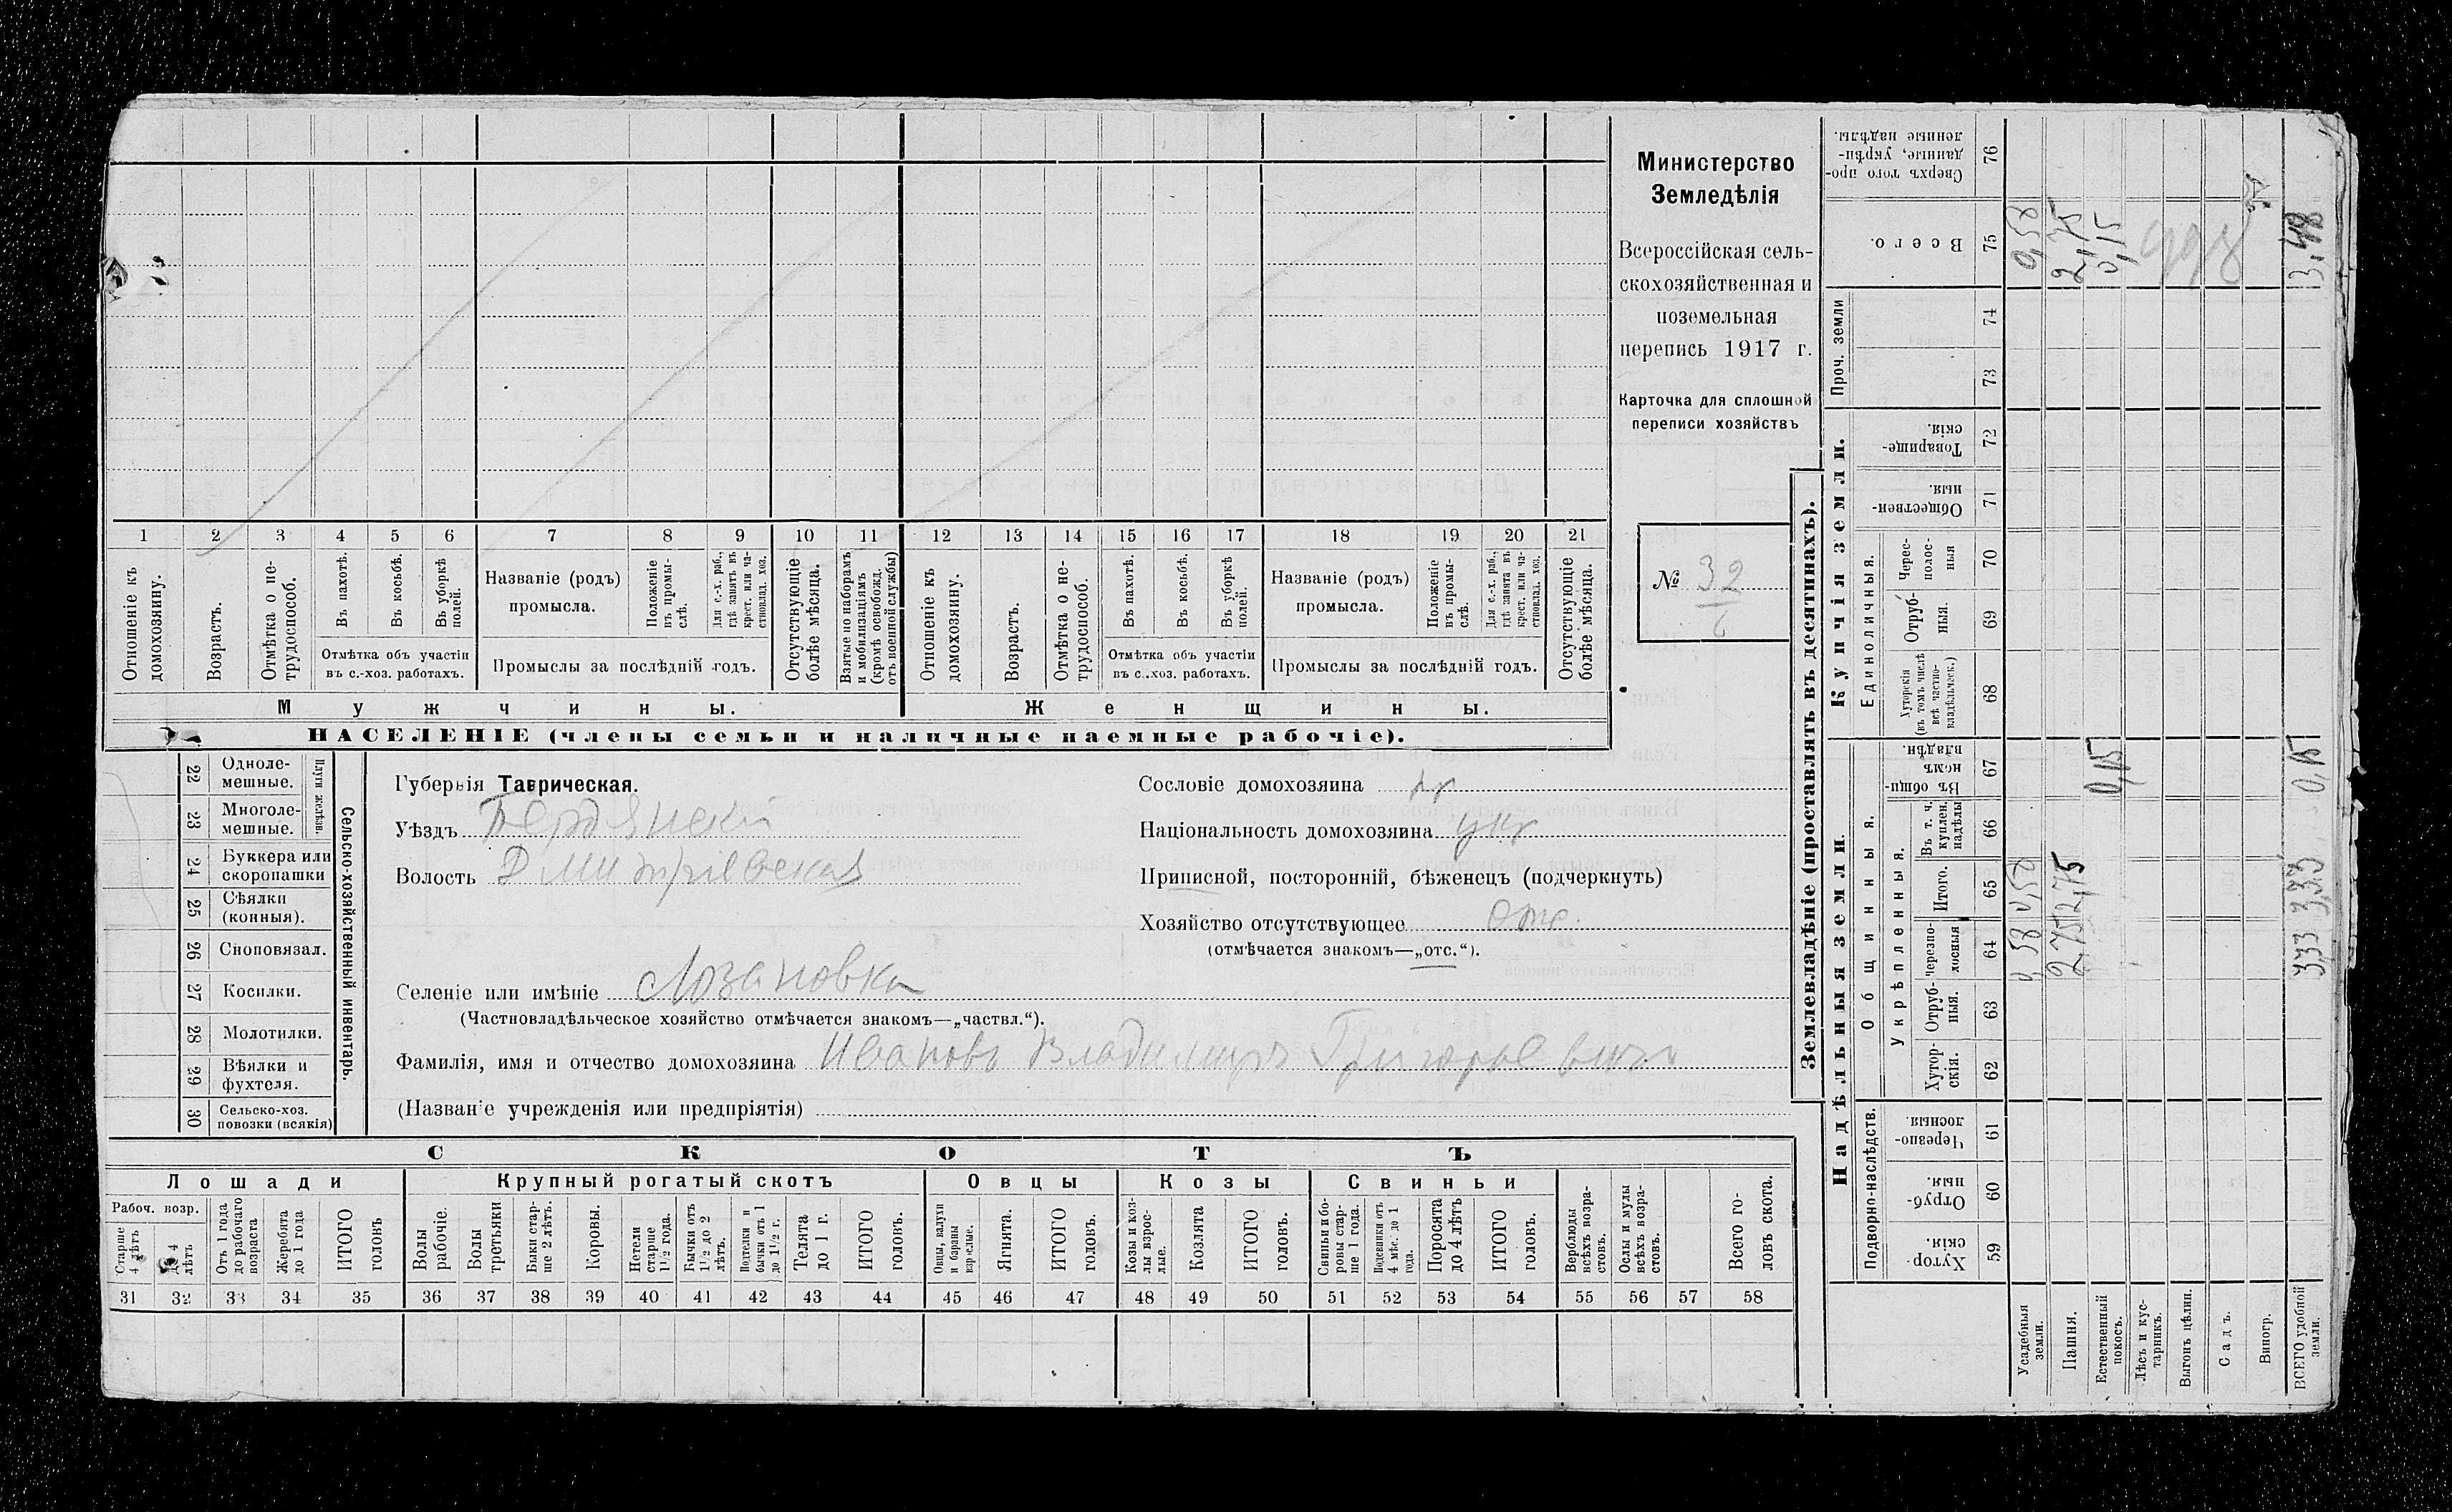 Министерство
Земледѣлія
Всероссійская сель-
скохозяйственная и
поземельная
перепись 1917 г.
Карточка для сплошной
переписи хозяйствъ
№ 32
1 2 3 4 5 6 7 8 9 10 11 12 13 14 15 16 17 18 19 20 21
Отношеніе къ домохозяину.
Возрастъ.
Отмѣтка о не-трудоспособ.
Въ пахотѣ.
Въ косьбѣ.
Въ уборкѣ полей.
Отмѣтка объ участіи
въ с.-хоз. работахъ.
Названіе (родъ)
промысла.
Положеніе въ промы-слѣ.
Для с.-х. раб., гдѣ занятъ въ крест. или ча-стновлад. хоз.
Промыслы за послѣдній годъ.
Отсутствующіе болѣе мѣсяца.
Взятые по наборамъ и мобилизаціямъ (кромѣ освобожд. отъ военной службы)
Отношеніе къ домохозяину.
Возрастъ.
Отмѣтка о не-трудоспособ.
Въ пахотѣ.
Въ косьбѣ.
Въ уборкѣ полей.
Отмѣтка объ участіи
въ с..хоз. работахъ.
Названіе (родъ)
промысла.
Положеніе въ промы-слѣ.
Для с.-х. раб., гдѣ занята въ крест. или ча-стновлад. хоз.
Промыслы за послѣдній годъ.
Отсутствующіе болѣе мѣсяца.
Мужчины. Женщины.
НАСЕЛЕНІЕ (члены семьи и наличные наемные рабочіе).
22 Одноле-мешные.
23 Многоле-мешные.
Плуги желѣзн.
24 Буккера или скоропашки
25 Сѣялки (конныя).
26 Сноповязал.
27 Косилки.
28 Молотилки.
29 Вѣялки и фухтеля.
30 Сельско-хоз. повозки (всякія)
Сельско-хозяйственный инвентарь.
Губернія Таврическая.
Уѣздъ Бердянскій
Волость Дмитріевская
Селеніе или имѣніе Лозановка
(Частновладѣльческое хозяйство отмѣчается знакомъ—„частвл.“).
Фамилія, имя и отчество домохозяина Ивановъ Владимиръ Григорьевичъ
(Названіе учрежденія или предпріятія)
Сословіе домохозяина кр
Національность домохозяина укр
Приписной, посторонній, бѣженецъ (подчеркнуть)
Хозяйство отсутствующее отс.
(отмѣчается знакомъ—„отс.“).
СКОТЪ
Лошади Крупный рогатый скотъ Овцы Козы Свиньи
Рабоч. возр.
Старше 4 лѣтъ
До 4 лѣтъ
Отъ 1 года до рабочаго возраста
Жеребята до 1 года
ИТОГО головъ
Волы рабочіе.
Волы третьяки
Быки стар-ше 2 лѣтъ.
Коровы.
Нетели старше 1½ года.
Бычки отъ 1½ до 2 лѣтъ.
Подтелки и бычки отъ 1 до 1½ г.
Телята до 1 г.
ИТОГО головъ.
Овцы, валухи и бараны взрослые.
Ягнята.
ИТОГО головъ.
Козы и коз-лы взрос-лые.
Козлята
ИТОГО головъ.
Свиньи и бо-ровы стар-ше 1 года.
Подсвинки отъ 4 мѣс. до 1 года.
Поросята до 4 лѣтъ
ИТОГО головъ.
Верблюды всѣхъ возра-стовъ.
Ослы и мулы всѣхъ возра-стовъ.
Всего го-ловъ скота.
31 32 33 34 35 36 37 38 39 40 41 42 43 44 45 46 47 48 49 50 51 52 53 54 55 56 57 58
Землевладѣніе (проставлять въ десятинахъ).
Надѣльныя земли. Купчія земли. Проч. земли
Подворно-наслѣдств.
Общинныя.
Укрѣпленныя.
Единоличныя.
Хутор-скія. 59
Отруб-ныя. 60
Черезпо-лосныя 61
Хутор-скія. 62
Отруб-ныя. 63
Черезпо-лосныя 64
Итого. 65
Въ т. ч. куплен. надѣлы 66
Въ общи-номъ владѣн. 67
Хуторскія (въ томъ числѣ всѣ частно-владѣльческ.) 68
Отруб-ныя. 69
Черес-полос-ныя 70
Обществен-ныя. 71
Товарище-скія. 72
73
74
Всего. 75
Сверхъ того про-данные, укрѣп-ленные надѣлы. 76
Усадебныя земли. 0,58 0,58 0,58
Пашня. 2,75 2,75 2,75
Естественный покосъ. 0,15 0,15
Лѣсъ и кус-тарникъ.
Выгонъ цѣлин.
Садъ.
Виногр.
ВСЕГО удобной земли. 3,33 3,33 0,15 3,48